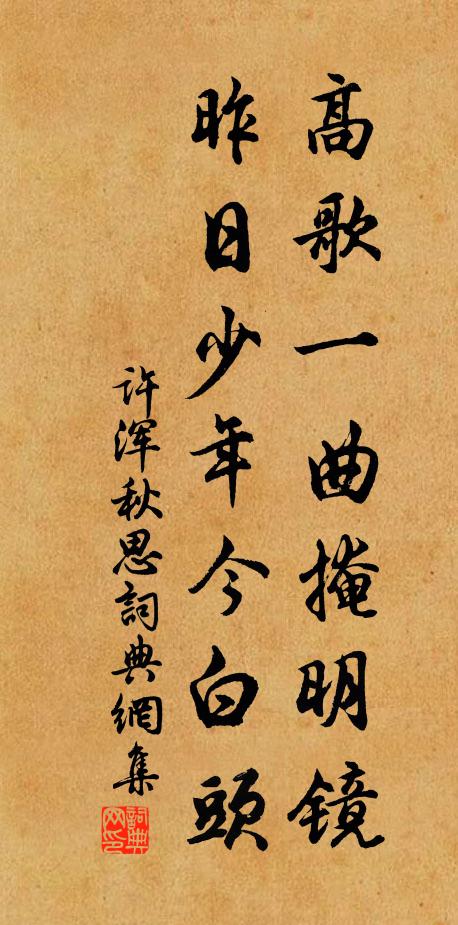 高歌一曲掩明镜
昨日少年今白頭
许浑秋思詞典網集
詞典网印